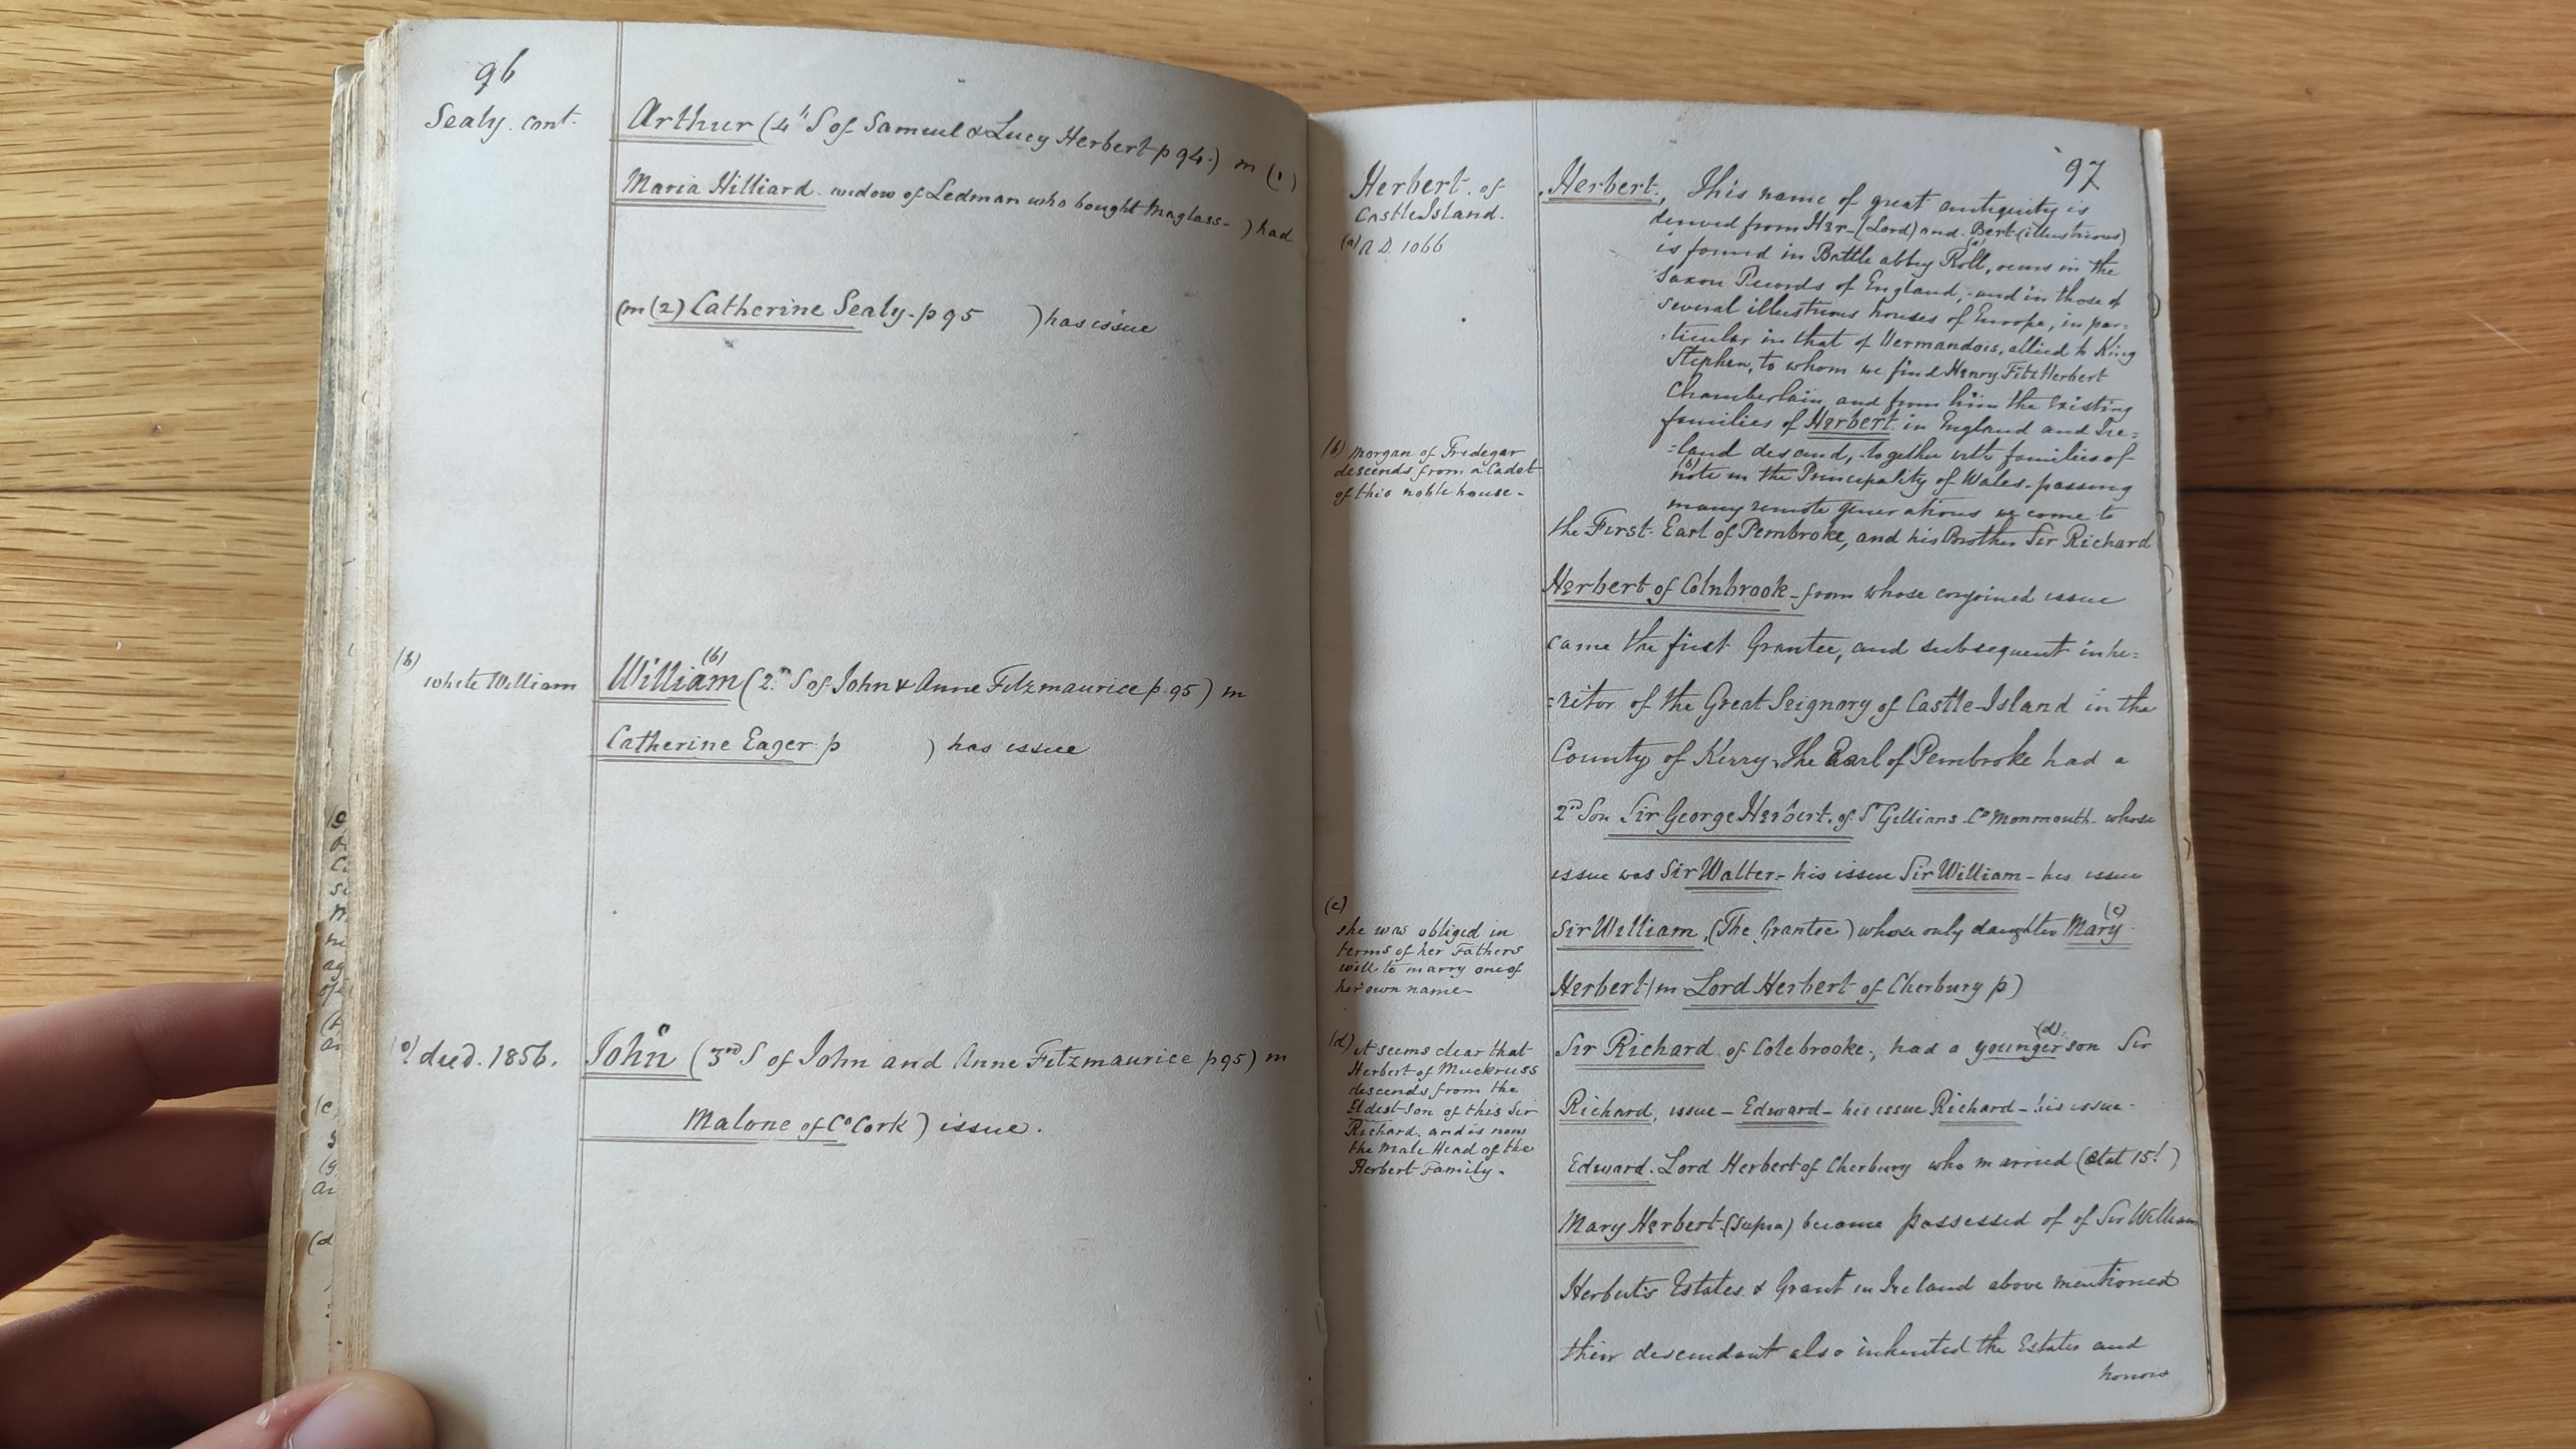 96
Sealy. cont.
Arthur (4th S of Samuel & Lucy Herbert p 94.) m (1)
Maria Hilliard. widow of Ledman who bought Maglass- ) had
(m (2) Catherine Sealy - p 95 ) has issue
(b)
white William
William (b) (2nd S of John & Anne Fitzmaurice p. 95) m
Catherine Eager p ) has issue
(c) died. 1856.
John c (3rd S of John and Anne Fitzmaurice p 95) m
Malone of Co Cork ) issue.
97
Herbert. of
Castle Island.
(a) A.D. 1066
Herbert, This name of great antiquity is
derived from Her-(Lord) and Bert (illustrious)
is found in Battle abbey Roll, (a) occurs in the
Saxon Records of England, - and in those of
several illustrious houses of Europe, in par-
:ticular in that of Vermandois, allied to King
Stephen, to whom we find Henry FitzHerbert
Chamberlain, and from him the existing
families of Herbert in England and Ire=
:land descend, - together with families of
(b) note in the Principality of Wales - passing
many remote generations we come to
(b) Morgan of Tredegar
descends from a Cadet
of this noble house -
the First Earl of Pembroke, and his Brother Sir Richard
Herbert of Colnbrook - from whose conjoined issue
came the first Grantee, and subsequent inhe=
:ritor of the Great Seignory of Castle-Island in the
County of Kerry. The Earl of Pembroke had a
2nd Son Sir George Herbert. of St Gillians Co Monmouth - whose
issue was Sir Walter - his issue Sir William - his issue
Sir William, (The Grantee) whose only daughter Mary (c)
Herbert (m Lord Herbert of Cherbury p)
(c)
she was obliged in
terms of her Fathers
will to marry one of
her own name -
Sir Richard of Colebrooke, had a younger (d) son Sir
Richard, issue - Edward - his issue Richard - his issue -
Edward. Lord Herbert of Cherbury who married (Etat 15!)
Mary Herbert (supra) became possessed of of Sir William
Herbert's Estates & Grant in Ireland above mentioned
their descendant also inherited the Estates and
honors
(d) it seems clear that
Herbert of Muckruss
descends from the
Eldest Son of this Sir
Richard. and is now
the Male Head of the
Herbert Family.